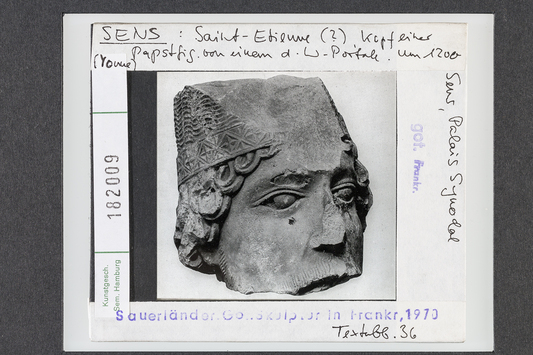 SENS : Saint-Etienne (?) Kopf einer
(Yonne) Papstfig. von einem d. W-Portale. um 1200
Sens, Palais Synodal
got. Frankr.
182009
Kunstgesch.
Sem. Hamburg
Sauerländer.Got.Skulptur in Frankr,1970
Textabb. 36